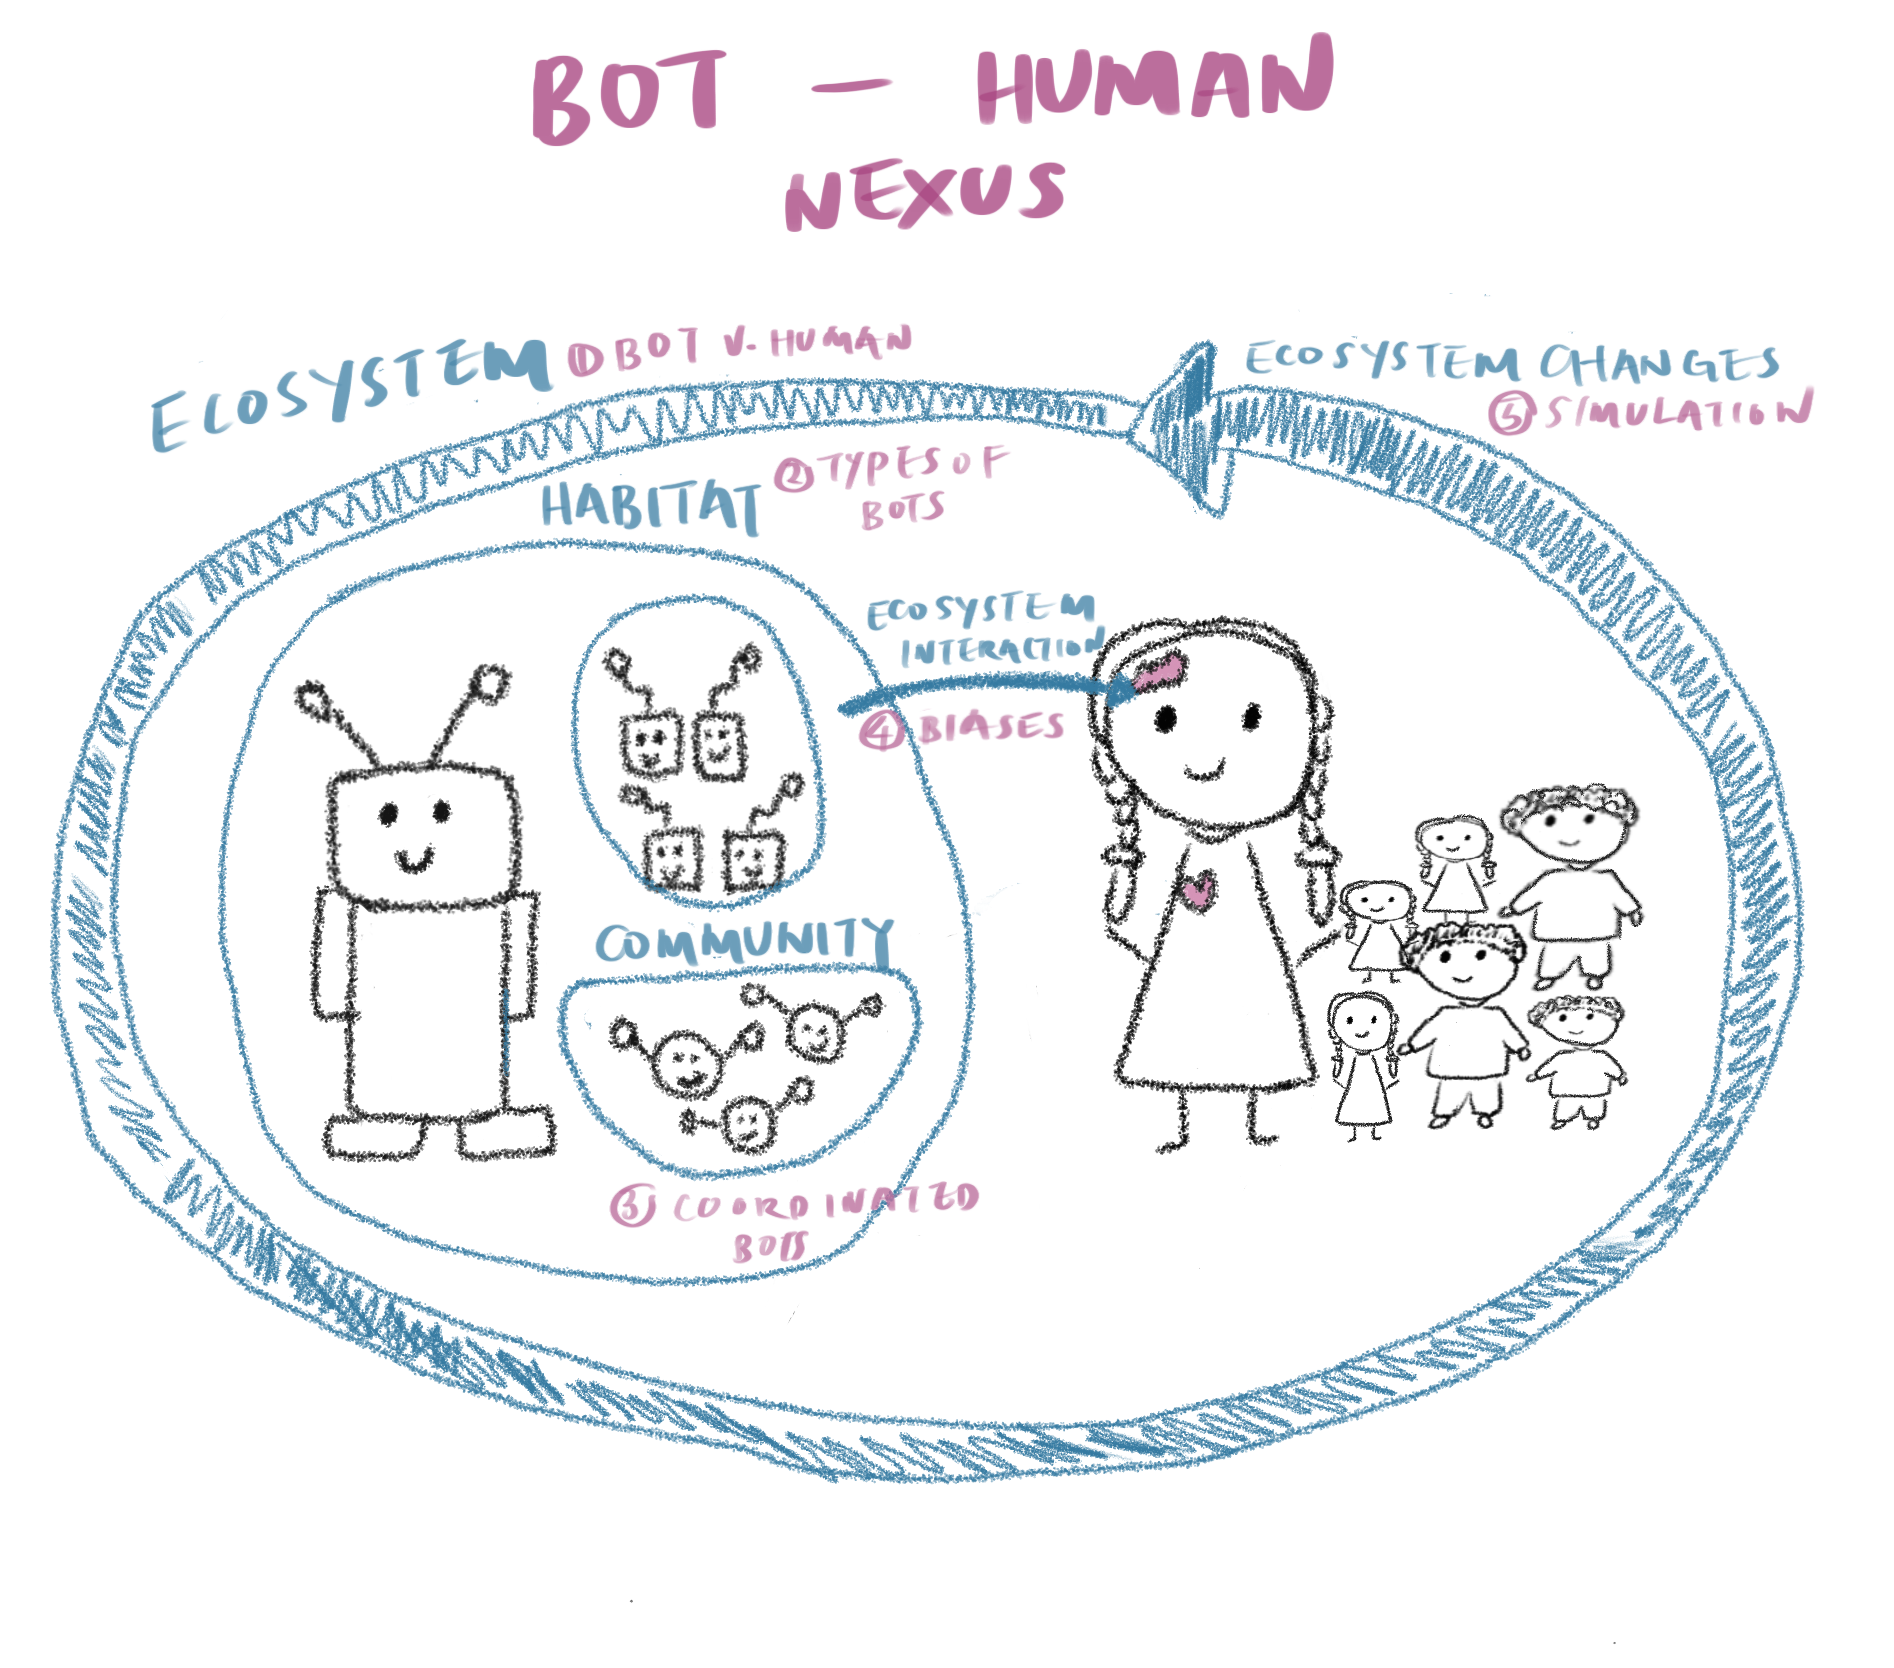 BOT – HUMAN
NEXUS
ECOSYSTEM ① BOT V. HUMAN
ECOSYSTEM CHANGES
⑤ SIMULATION
HABITAT ② TYPES OF
BOTS
ECOSYSTEM
INTERACTION
④ BIASES
COMMUNITY
③ COORDINATED
BOTS